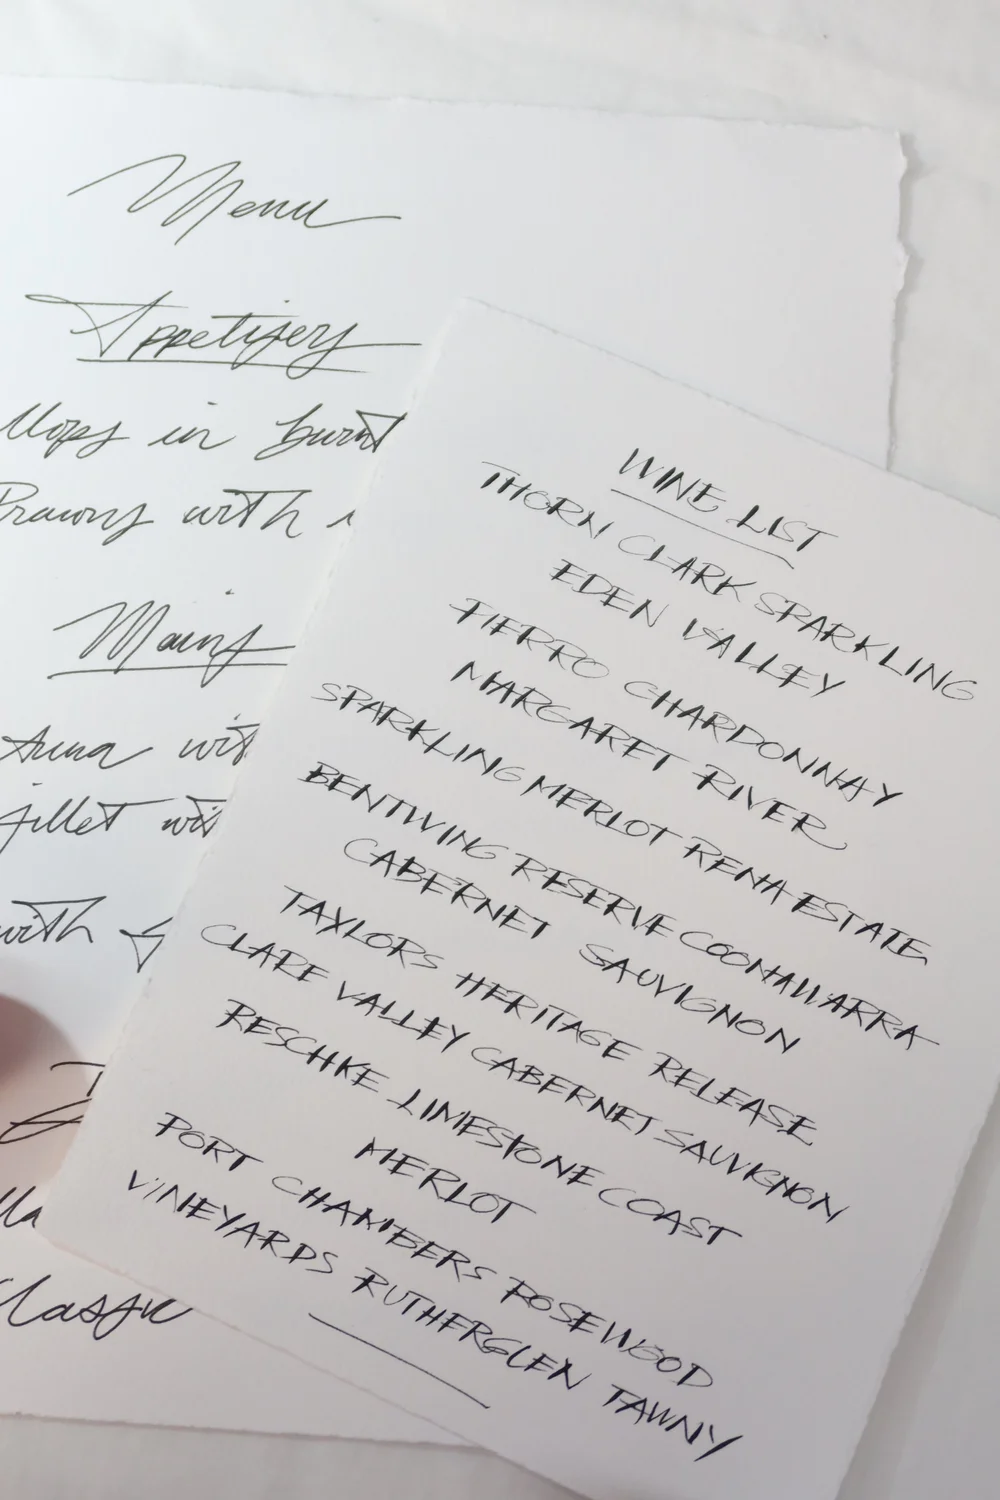 Menu
Appetizers
llops in burnt
Prawns with
Mains
tuna wit
fillet wit
with
Classic
WINE LIST
THORN CLARK SPARKLING
EDEN VALLEY
FIERRO CHARDONNAY
MARGARET RIVER
SPARKLING MERLOT RENA ESTATE
BENTWING RESERVE COONAWARRA
CABERNET SAUVIGNON
TAYLORS HERITAGE RELEASE
CLARE VALLEY CABERNET SAUVIGNON
RESCHKE LIMESTONE COAST
MERLOT
PORT CHAMBERS ROSEWOOD
VINEYARDS RUTHERGLEN TAWNY